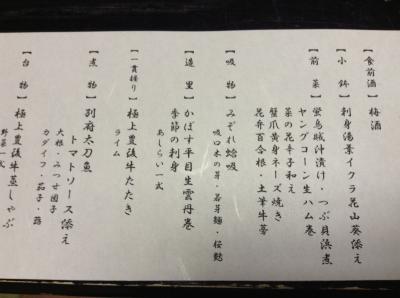 【食前酒】 梅酒
【小鉢】 刺身湯葉イクラ花山葵添え
【前菜】 蛍烏賊沖漬け・つぶ貝浜煮
ヤングコーン生ハム巻
菜の花辛子和え
蟹爪黄身ネーズ焼き
花弁百合根・土筆牛蒡
【吸物】 みぞれ蛤吸
吸口木の芽・若芽麺・桜麩
【造里】 かぼす平目生雲丹巻
季節の刺身
あしらい一式
【一貫握り】 極上豊後牛たたき
ライム
【煮物】 別府太刀魚
トマトソース添え
大根・みつせ団子
カダイフ・茄子・蕗
【台物】 極上豊後牛蒸しゃぶ
野菜一式